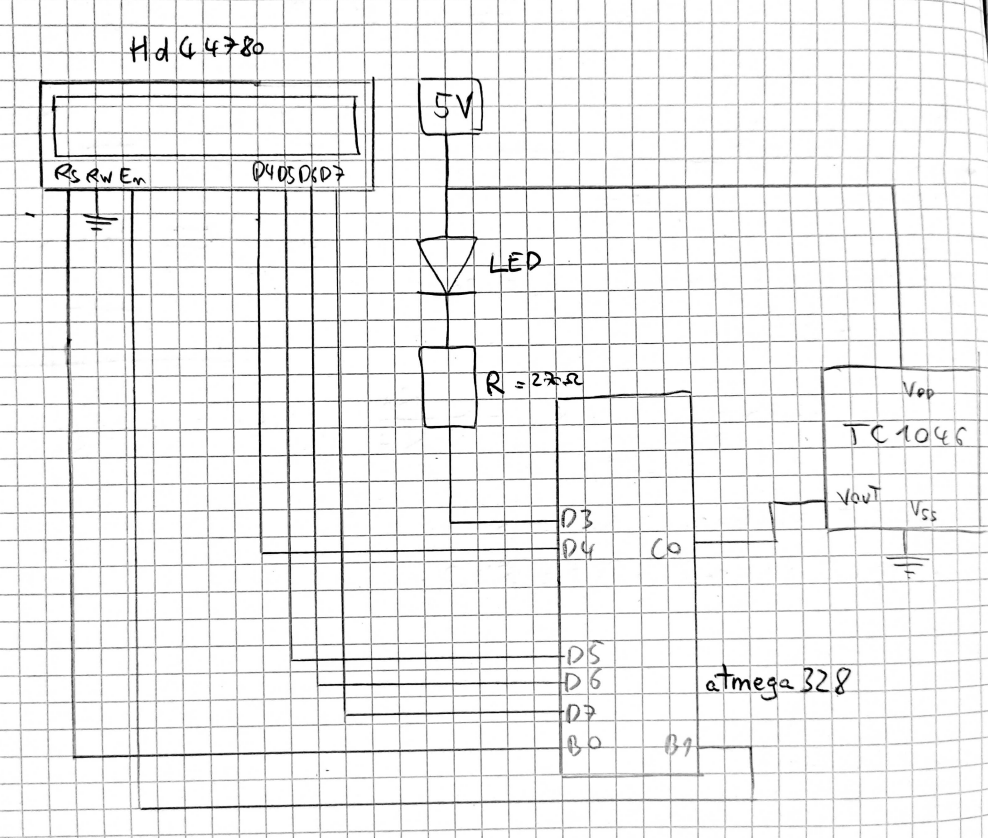 Hd44780
5V
RS RW En D4 D5 D6 D7
LED
R = 270Ω
VDD
TC1046
VOUT
VSS
D3
D4 C0
D5
D6
atmega328
D7
B0 B1